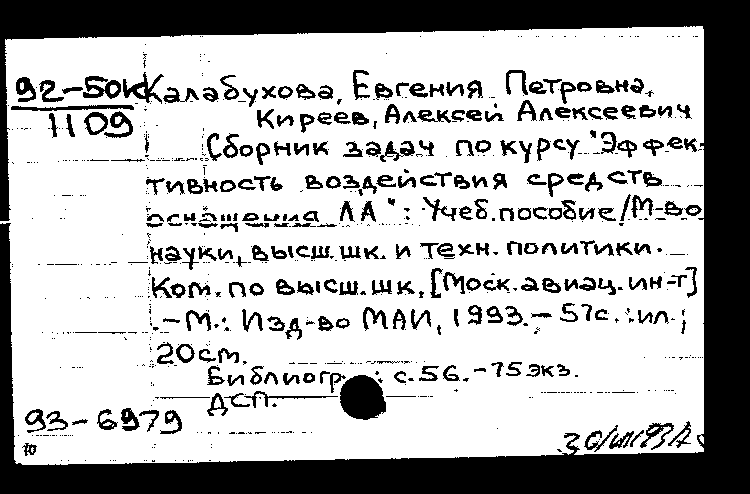 92-50к Калабухова, Евгения Петровна,
1109 Киреев, Алексей Алексеевич
Сборник задач по курсу "Эффек-
тивность воздействия средств
оснащения ЛА": Учеб. пособие/М-во
науки, высш. шк. и техн. политики.
Ком. по высш. шк., [Моск. авиац. ин-т]
.-М.: Изд-во МАИ, 1993.- 57с.:ил.;
20см.
Библиогр.: с.56.-75экз.
ДСП.
93-6979
10